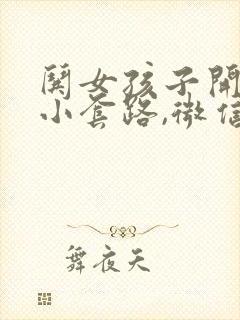 闋女孩子開
小套路,微信
舞夜天